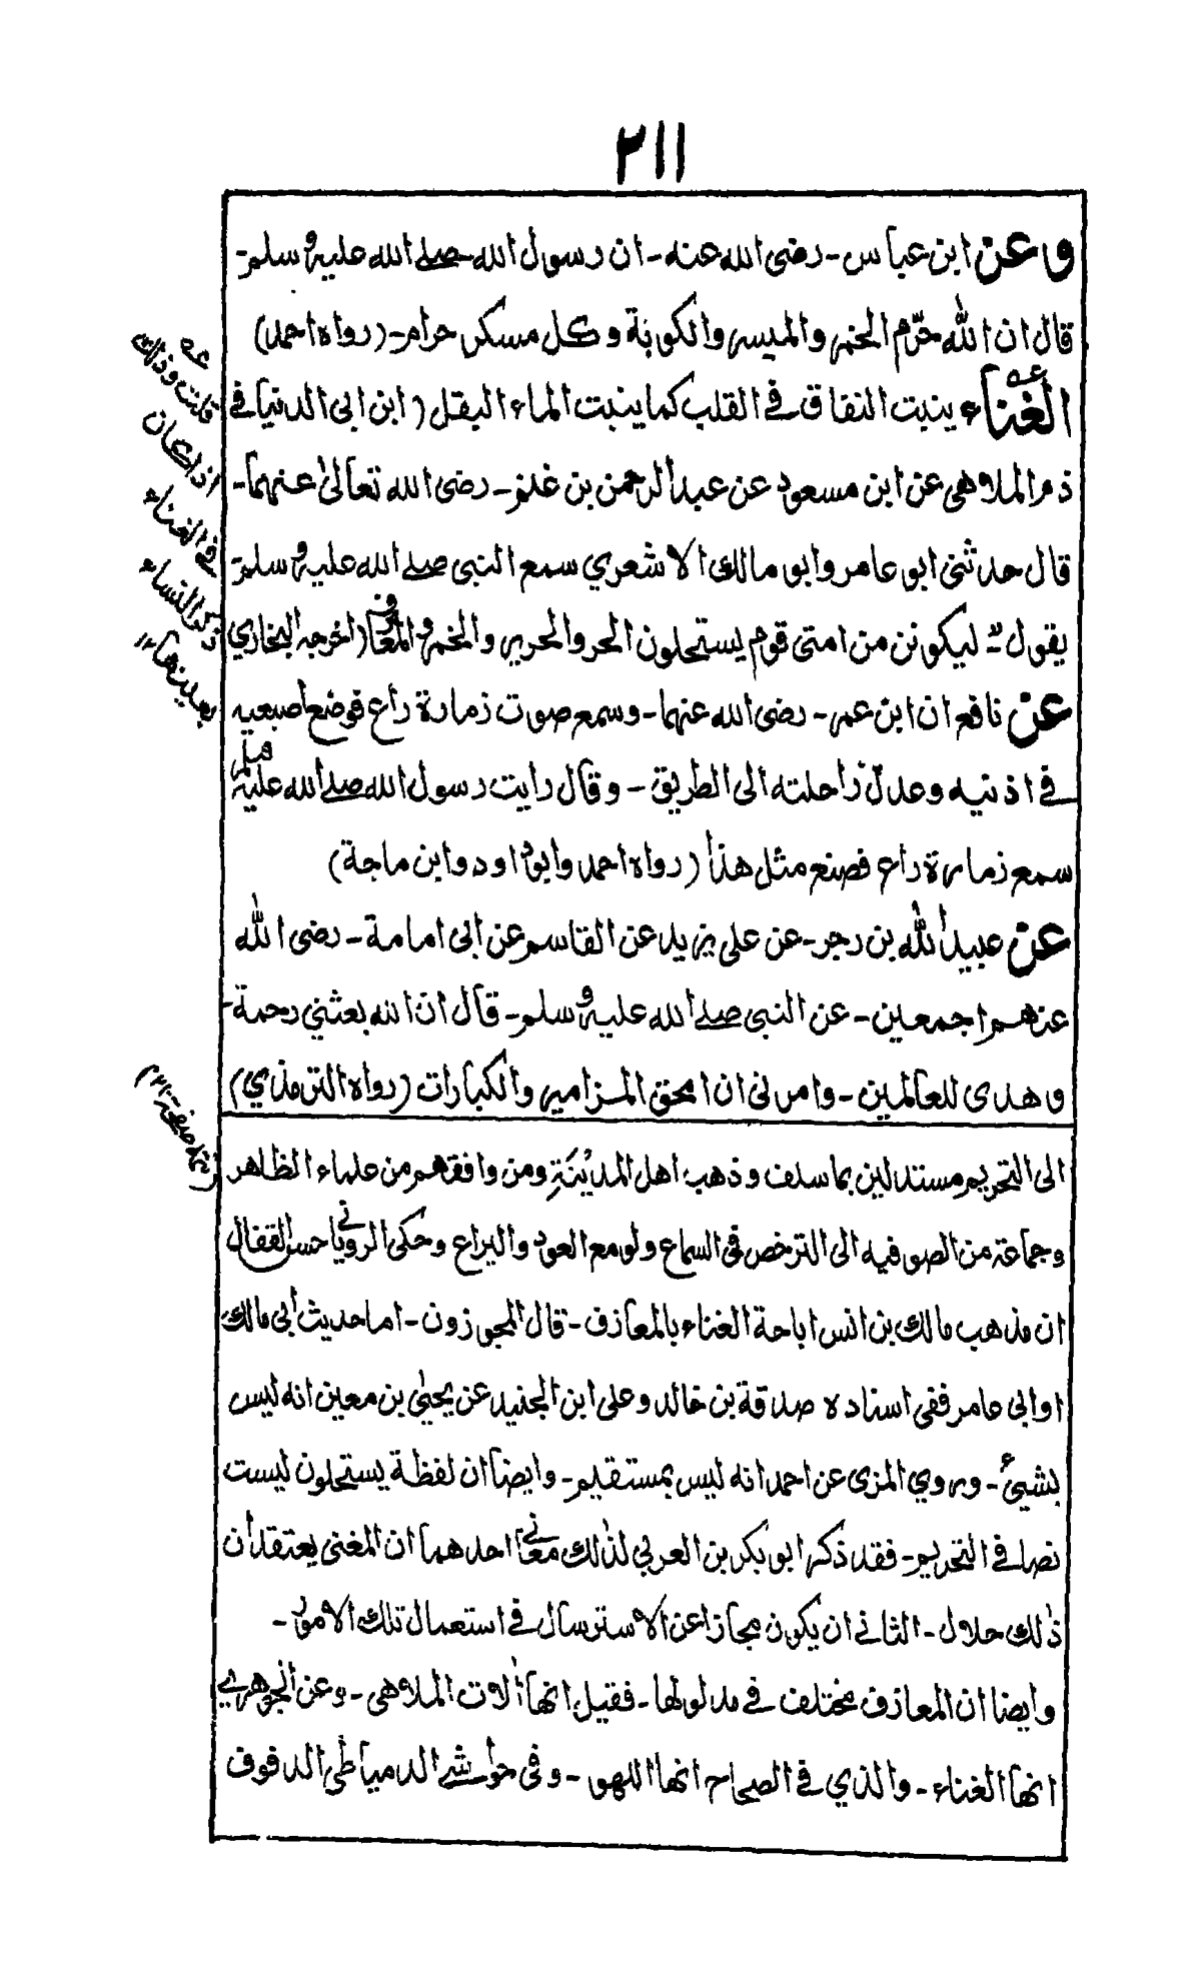 ٢١١
وعن ابن عباس - رضى الله عنه - ان رسول الله صلے الله عليہ وسلم -
قال ان الله حرّم الخمر والميسر والكوبة وكل مسكر حرام - (رواه احمد)
الغناء عــہ ينبت النفاق فے القلب كما ينبت الماء البقل (ابن ابى الدنيا فے
ذم الملاهى عن ابن مسعود عن عبد الرحمن بن غنم - رضى الله تعالىٰ عنهما -
قال حدثنى ابو عامر وابو مالك الاشعري سمع النبى صلے الله عليہ وسلم
يقول ليكونن من امتى قوم يستحلون الحر والحرير والخمر والمعازف (اخرجہ البخاري
عن نافع ان ابن عمر - رضى الله عنهما - وسمع صوت زمارة راع فوضع اصبعيه
فے اذنيه وعدل راحلته الى الطريق - وقال رايت رسول الله صلے الله عليہ وسلم
سمع زمارة راع فصنع مثل هذا (رواه احمد وابو داود وابن ماجة)
عن عبيد الله بن رجر - عن على يزيد عن القاسم عن ابى امامة - رضى الله
عنهم اجمعين - عن النبى صلے الله عليہ وسلم - قال ان الله بعثني رحمة
وهدى للعالمين - وامرنى ان امحق المزامير والكبارات (رواه الترمذي)
عــہ
قلت وذلك
اذا كان
فے الغناء
ذكر النساء
بعينها ١٢
(تتمہ صفحۃ ٢١٠)
الى التحريم مستدلين بما سلف وذهب اهل المدينة ومن وافقهم من علماء الظاهر
وجماعة من الصوفيه الى الترخص فى السماع ولو مع العود واليراع وحكى الرويانے القفال
ان مذهب مالك بن انس اباحة الغناء بالمعازف - قال المجوزون - اما حديث أبى مالك
او ابى عامر ففى اسناده صدقة بن خالد وعلى ابن الجنيد عن يحيىٰ بن معين انه ليس
بشيئ - وروي المزى عن احمد انه ليس بمستقيم - وايضا ان لفظة يستحلون ليست
نصا فے التحريم - فقد ذكر ابو بكر بن العربي لذلك معانے احدهما ان المغنى يعتقد أن
ذلك حلال - الثانے ان يكون مجازا عن الاسترسال فے استعمال تلك الامور -
وايضا ان المعازف مختلف فے مدلولها - فقيل انها آلات الملاهى - وعن الجوهري
انها الغناء - والذي فے الصحاح انها اللهو - وفى حواشے الدمياطى الدفوف